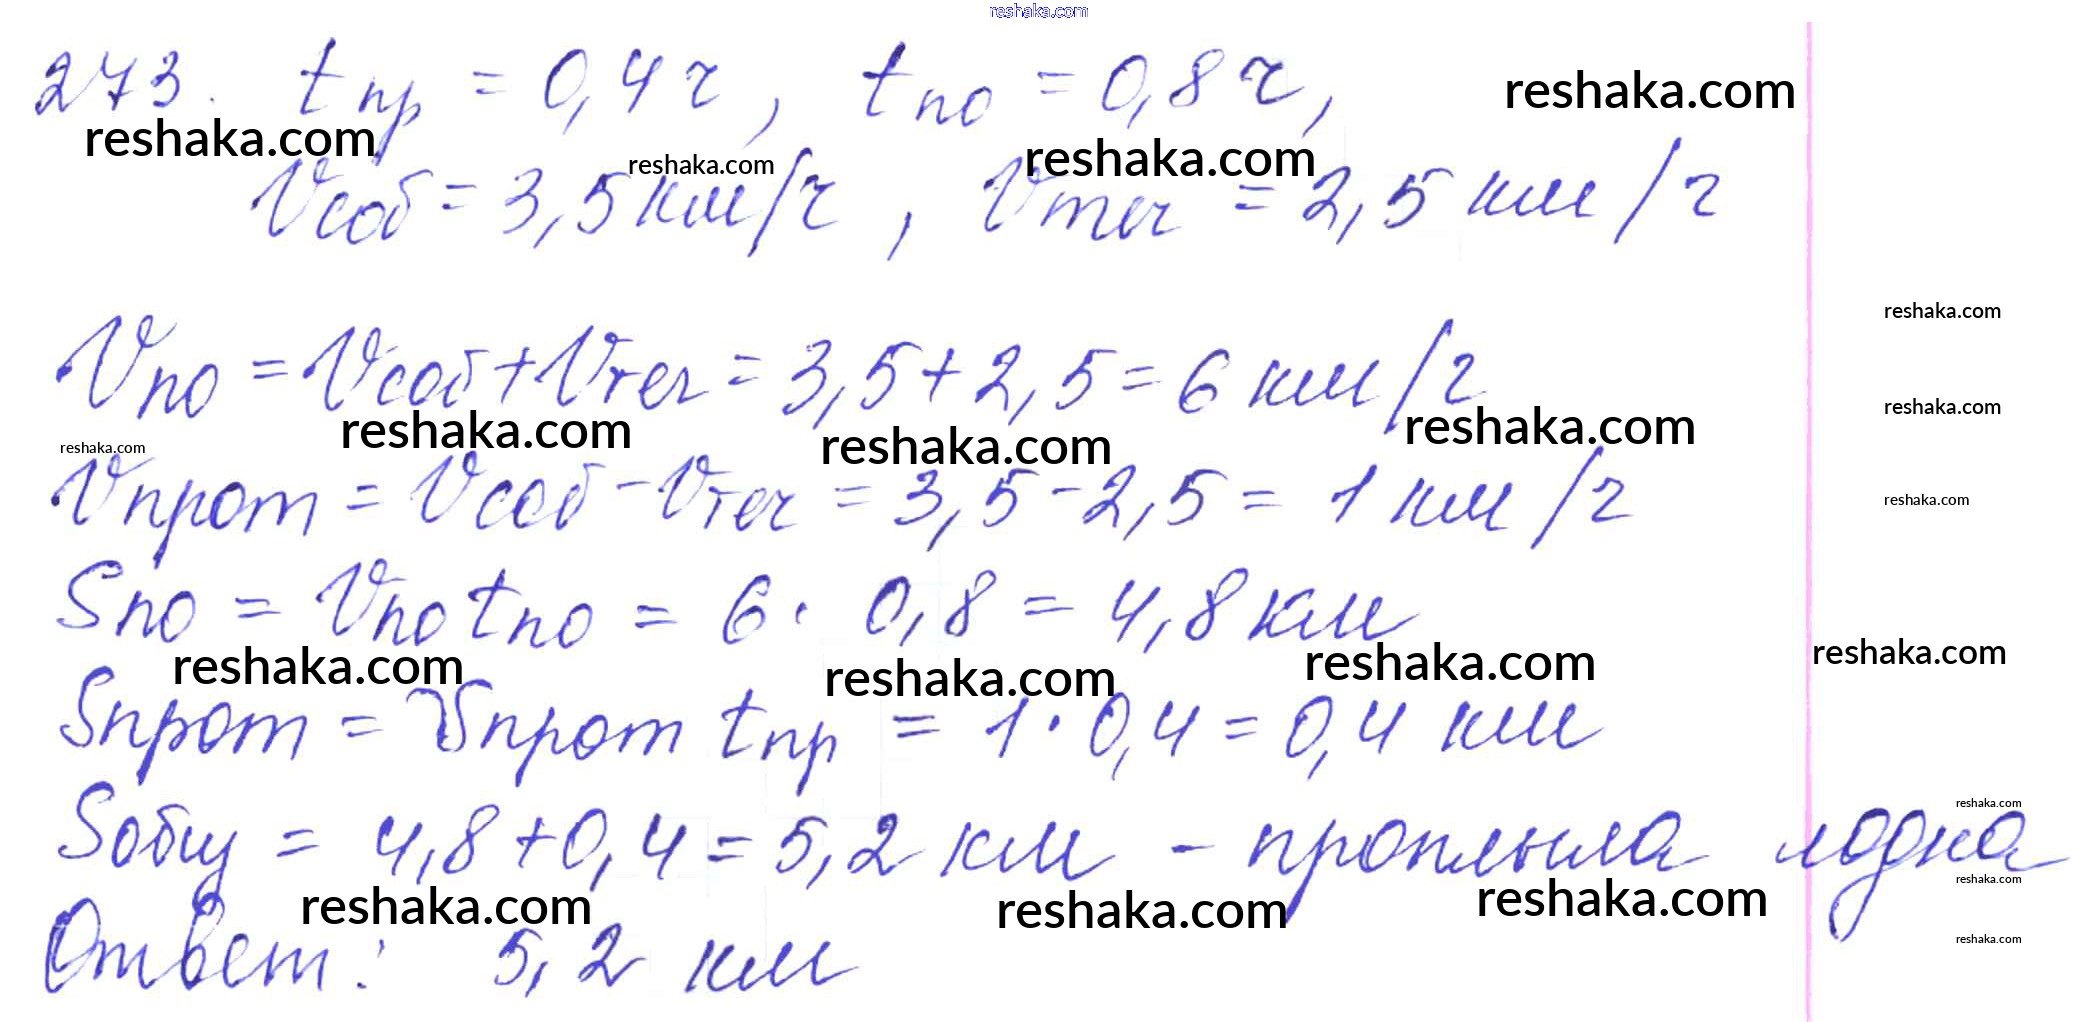 reshaka.com
273. tпр = 0,4 ч, tпо = 0,8 ч,
reshaka.com
reshaka.com reshaka.com reshaka.com
Vсоб = 3,5 км/ч, Vтеч = 2,5 км/ч
reshaka.com
Vпо = Vсоб + Vтеч = 3,5 + 2,5 = 6 км/ч
reshaka.com
reshaka.com reshaka.com reshaka.com
reshaka.com
Vпрот = Vсоб - Vтеч = 3,5 - 2,5 = 1 км/ч
reshaka.com
Sпо = Vпо tпо = 6 · 0,8 = 4,8 км
reshaka.com reshaka.com reshaka.com reshaka.com
Sпрот = Vпрот tпр = 1 · 0,4 = 0,4 км
reshaka.com
Sобщ = 4,8 + 0,4 = 5,2 км - проплыла лодка
reshaka.com
reshaka.com reshaka.com reshaka.com
reshaka.com
Ответ: 5,2 км